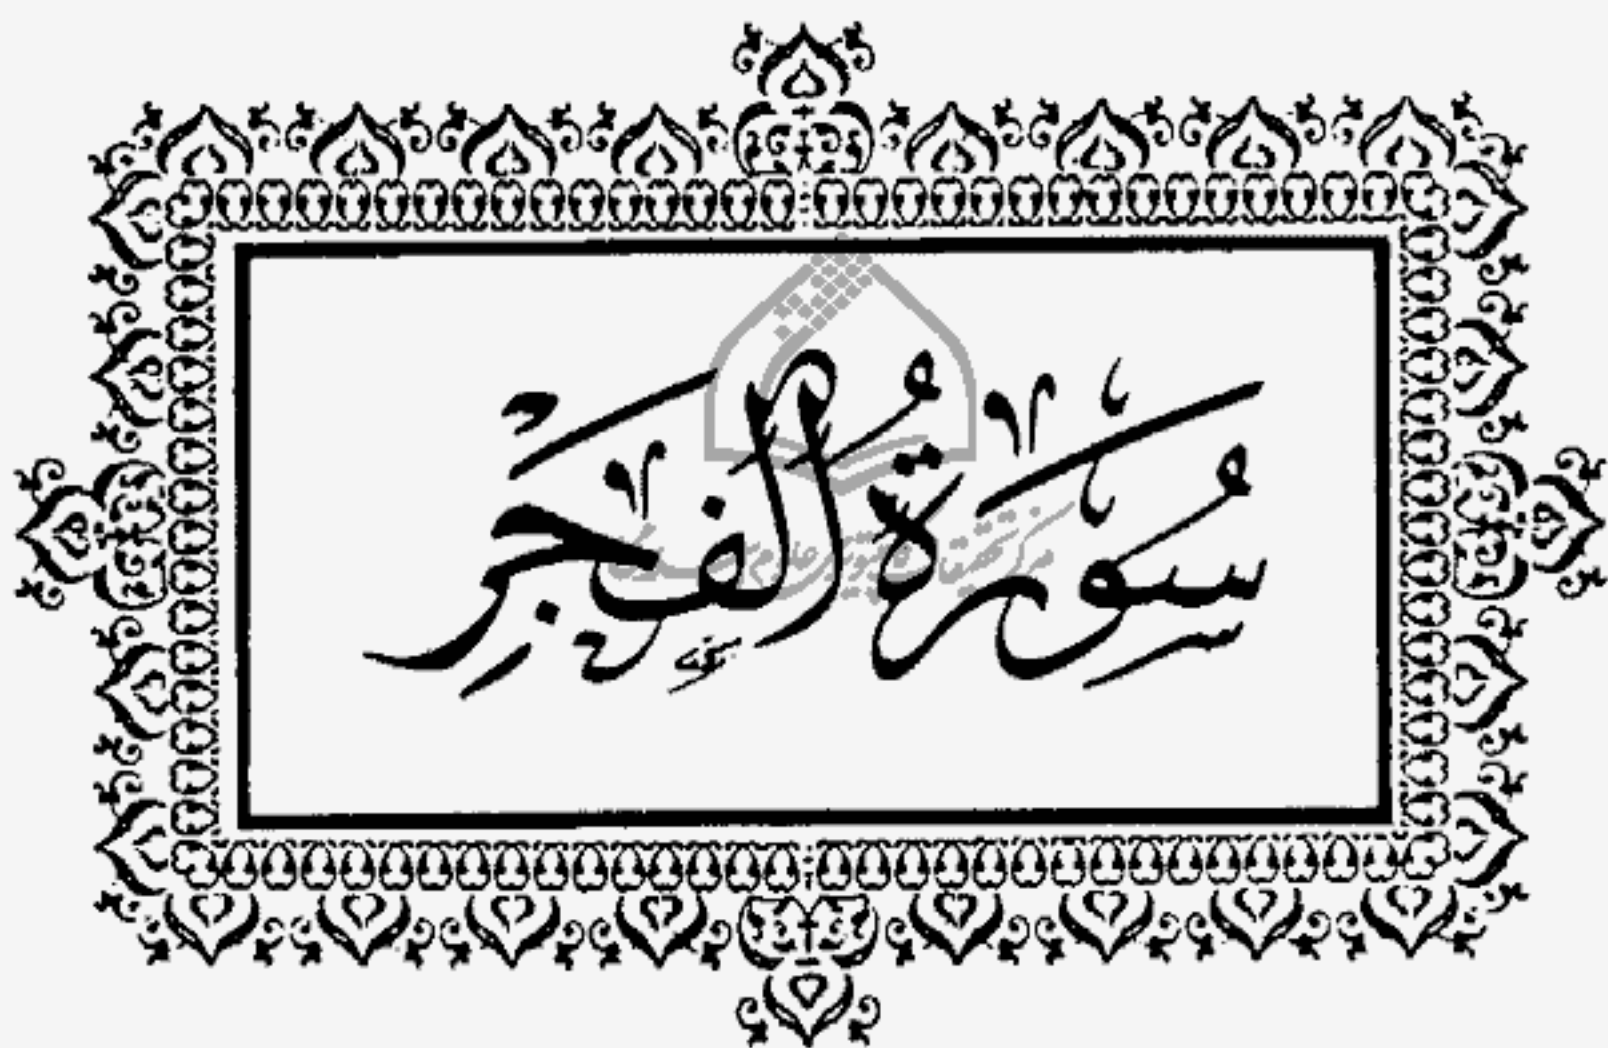 سُورَةُ الْفَجْرِ
مركز تحقيقات كامپيوتری علوم اسلامی